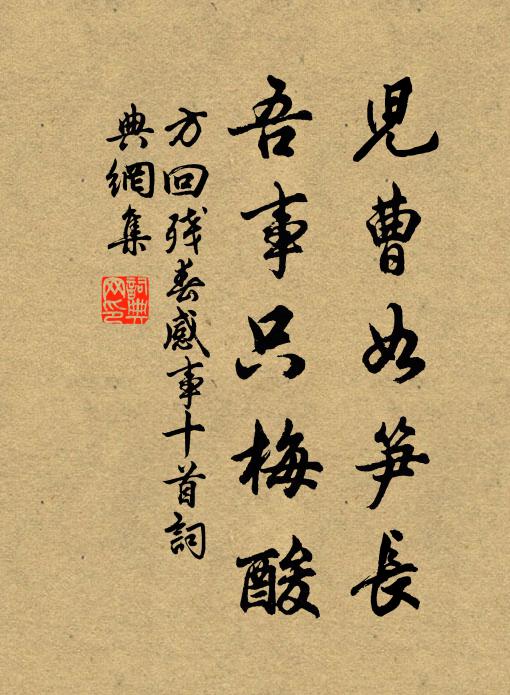 兒曹如笋長
吾事只梅酸
方回残春感事十首詞
典網集
詞典網印